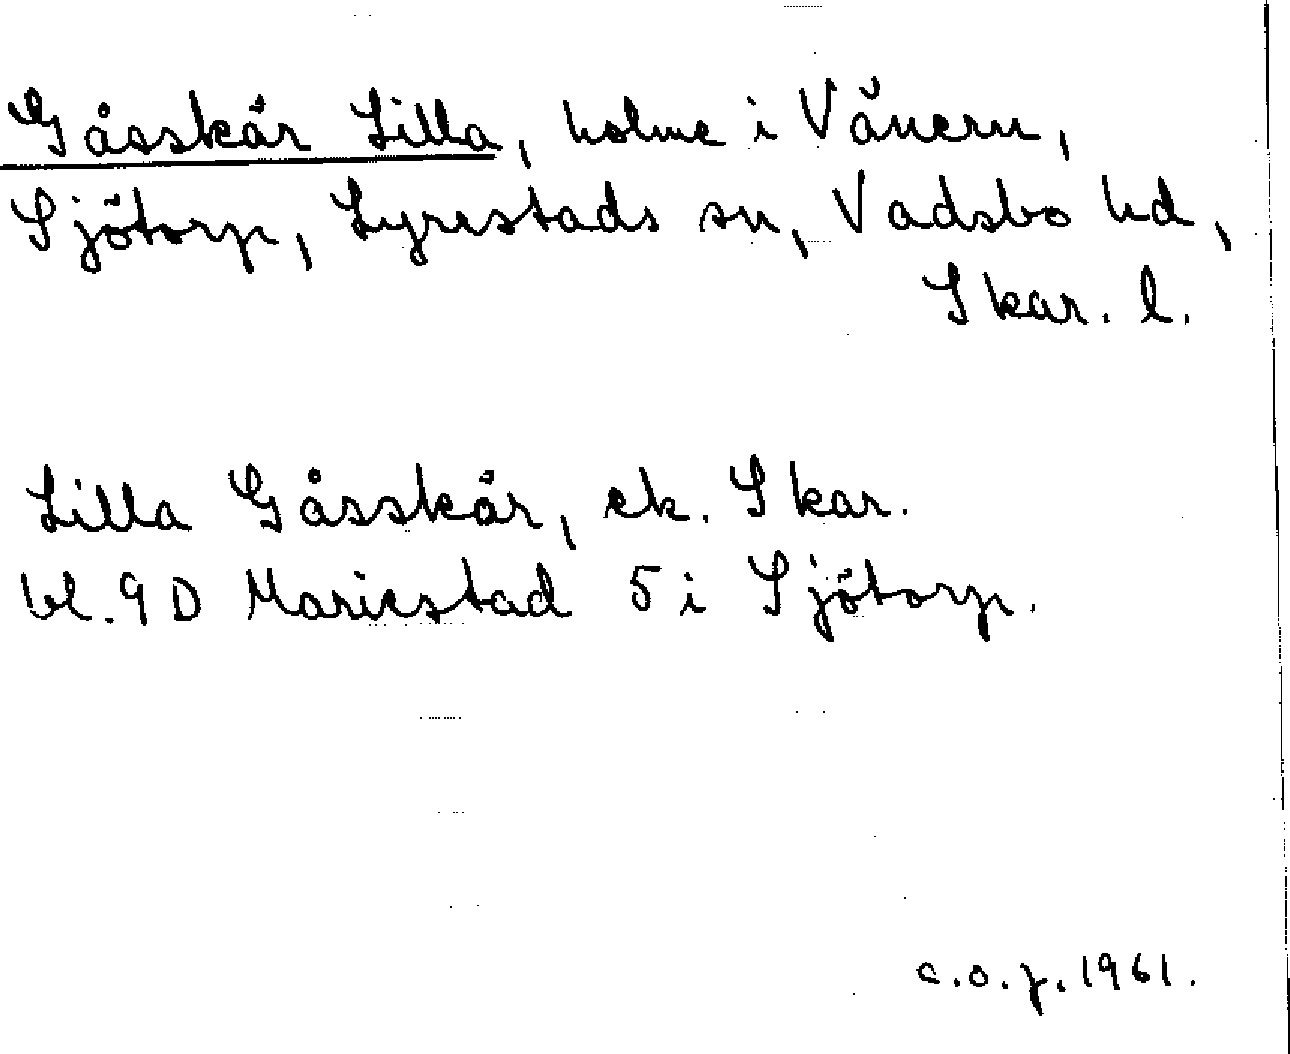 Gåsskär Lilla, holme i Vänern,
Sjötorp, Lyrestads sn, Vadsbo hd,
Skar. l.
Lilla Gåsskär, ek. Skar.
bl. 9 D Mariestad 5 i Sjötorp.
c.o.f. 1961.